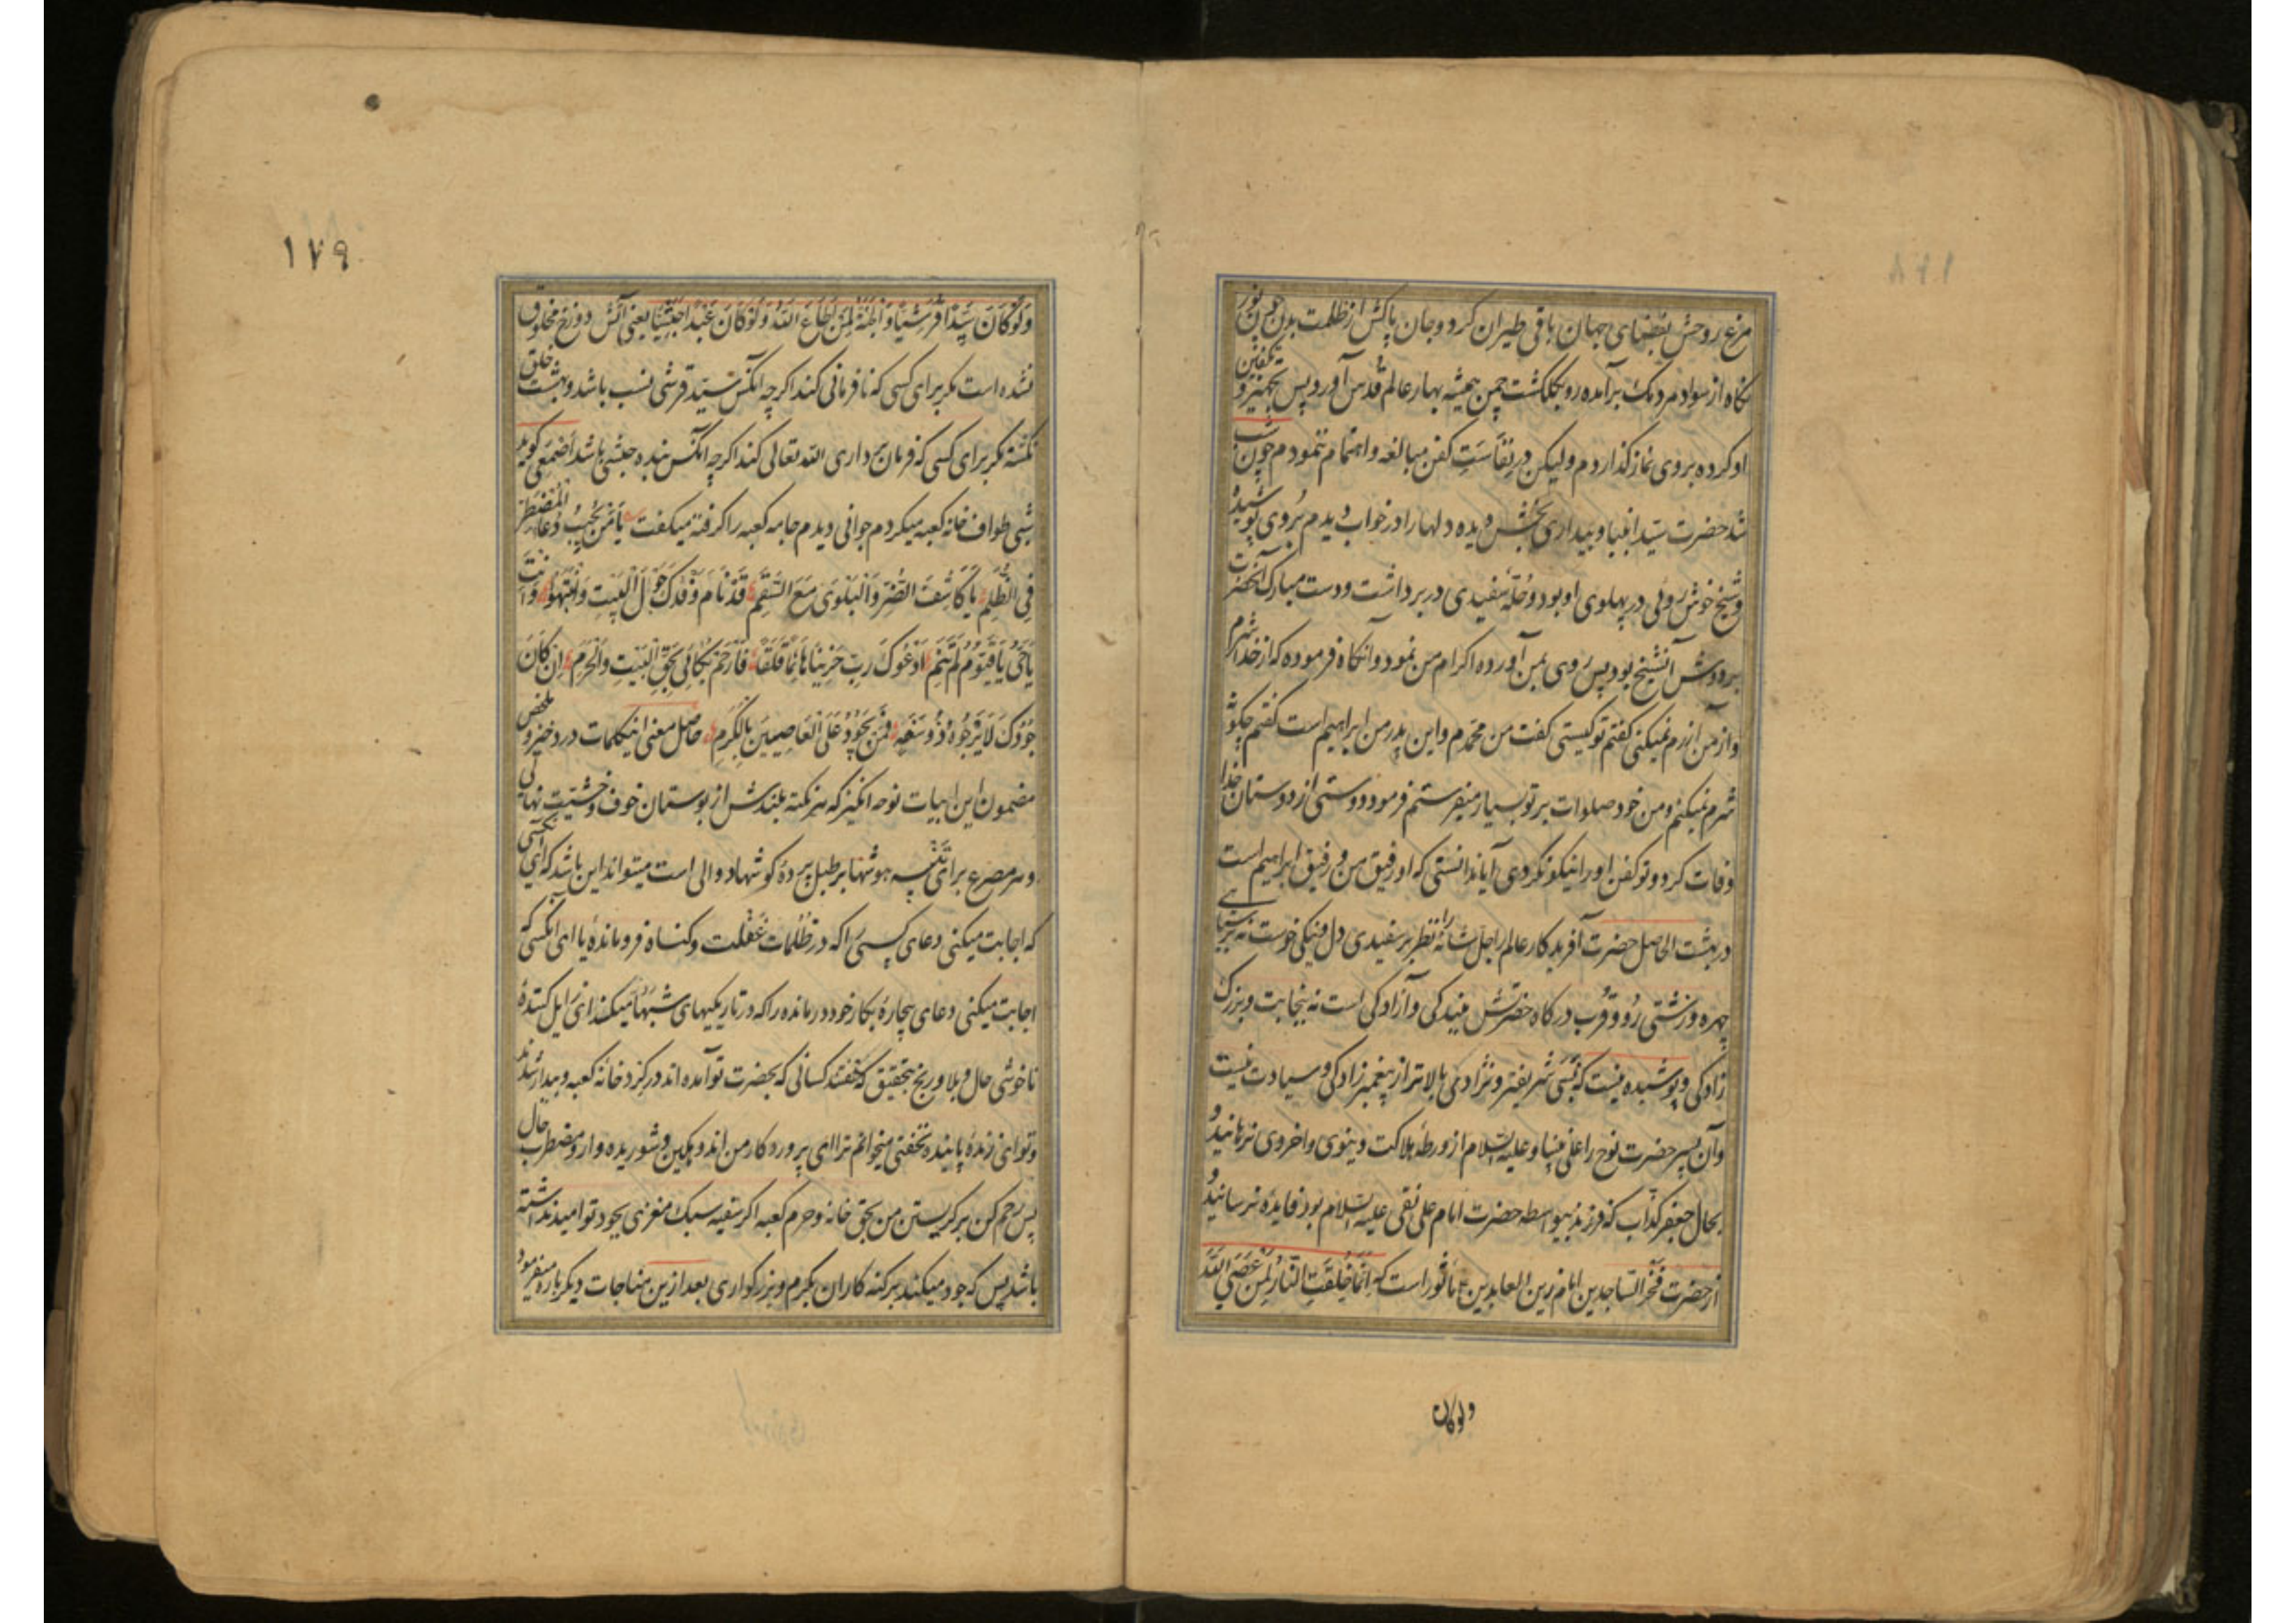 مرغ روحش بفضای جهان باقی طیران کرد و جان پاکش از ظلمت بدن چون نور
نگاه از سواد مردمک برآمده رو بگلگشت چمن همیشه بهار عالم قدس آورد پس بتجهیز و تکفین
او کرده بروی نماز گذاردم ولیکن در نفاست کفن مبالغه و اهتمام ننمودم چون شب
شد حضرت سید انبیا و بیداری بخش دیده دلها را در خواب دیدم بُردی پوشیده
و شیخ خوش روئی در پهلوی او بود و حُلّه سفیدی در بر داشت و دست مبارک آنحضرت
بر دوش آنشیخ بود پس روی بمن آورده اکرام من نمود و آنگاه فرموده که از خدا شرم
و از من آزرم نمیکنی گفتم تو کیستی گفت من محمدم و این پدر من ابراهیم است گفتم چگونه
شرم نمیکنم و من خود صلوات بر تو بسیار میفرستم فرمود دوستی از دوستان خدا
وفات کرد و تو کفن او را نیکو نکردی آیا ندانستی که او رفیق من و رفیق ابراهیم است
در بهشت الحاصل حضرت آفریدگار عالم را جل شانه نظر بر سفیدی دل و نیکی خوست نه بر سیاهی
چهره و زشتی رو و قُرب درگاه حضرتش ببندگی و آزادگی است نه بنجابت و بزرگ
زادگی و پوشیده نیست که نسبی شریفتر و نژادی بالاتر از پیغمبرزادگی و سیادت نیست
و آن پسر حضرت نوح را علی نبینا و علیه السلام از ورطه هلاکت دینوی و اخروی نرهانید و
بحال جعفر کذاب که فرزند بیواسطه حضرت امام علی نقی علیه السلام بود فایده نرسانید و
از حضرت فخر الساجدین امام زین العابدین ع ماثور است که اِنَّمَا خُلِقَتِ النَّارُ لِمَنْ عَصَی اللهَ
ولوکان
۱۷۹
وَلَوْ کَانَ سَیِّدًا قُرَشِیًّا وَالْجَنَّةُ لِمَنْ اَطَاعَ اللهَ وَلَوْ کَانَ عَبْدًا حَبَشِیًّا یعنی آتش دوزخ مخلوق
نشده است مگر برای کسی که نافرمانی کند اگرچه آنکس سیّد قرشی نسب باشد و بهشت خلق
نگشته مگر برای کسی که فرمان برداری الله تعالی کند اگرچه آنکس بنده حبشی باشد اصمعی گوید
شبی طواف خانه کعبه میکردم جوانی دیدم جامه کعبه را گرفته میگفت یَا مَنْ یُجِیبُ دُعَاءَ الْمُضْطَرِّ
فِی الظُّلَمِ یَا کَاشِفَ الضُّرِّ وَالْبَلْوَی مَعَ السَّقَمِ قَدْ نَامَ وَفْدُکَ حَوْلَ الْبَیْتِ وَانْتَبَهُوا وَاَنْتَ
یَا حَیُّ یَا قَیُّومُ لَمْ تَنَمِ اَدْعُوکَ رَبِّ حَزِینًا هَائِمًا قَلِقًا فَارْحَمْ بُکَائِی بِحَقِّ الْبَیْتِ وَالْحَرَمِ اِنْ کَانَ
جُودُکَ لَا یَرْجُوهُ ذُو سَعَهٍ فَمَنْ یَجُودُ عَلَی الْعَاصِینَ بِالْکَرَمِ حاصل معنی اینکلمات درد خیز و ملخص
مضمون این ابیات نوحه انگیز که هر نکته بلندش از بوستان خوف و خشیت نهالی
و هر مصرع برای تنبیه هوشها بر طبل پرده گوشها دوالی است میتواند این باشد که ای آنکسی
که اجابت میکنی دعای کسی را که در ظلمات غفلت و گناه فرومانده یا ای آنکسی که
اجابت میکنی دعای بیچاره بکار خود درمانده را که در تاریکیهای شبها میکند ای زایل کنندهٔ
ناخوشی حال و بلا و رنج بتحقیق که خفتند کسانی که بحضرت تو آمده اند در گرد خانه کعبه و بیدار شدند
و تو ای زندهٔ پاینده نخفتی میخوانم ترا ای پروردگار من اندوهگین و شوریده وار و مضطرب حال
پس رحم کن بر گریستن من بحق خانه و حرم کعبه اگر سفیه سبک مغزی بجود تو امید نداشته
باشد پس که جود میکند بر گنه کاران بکرم و بزرگواری بعد ازین مناجات دیگر باره میفرمود